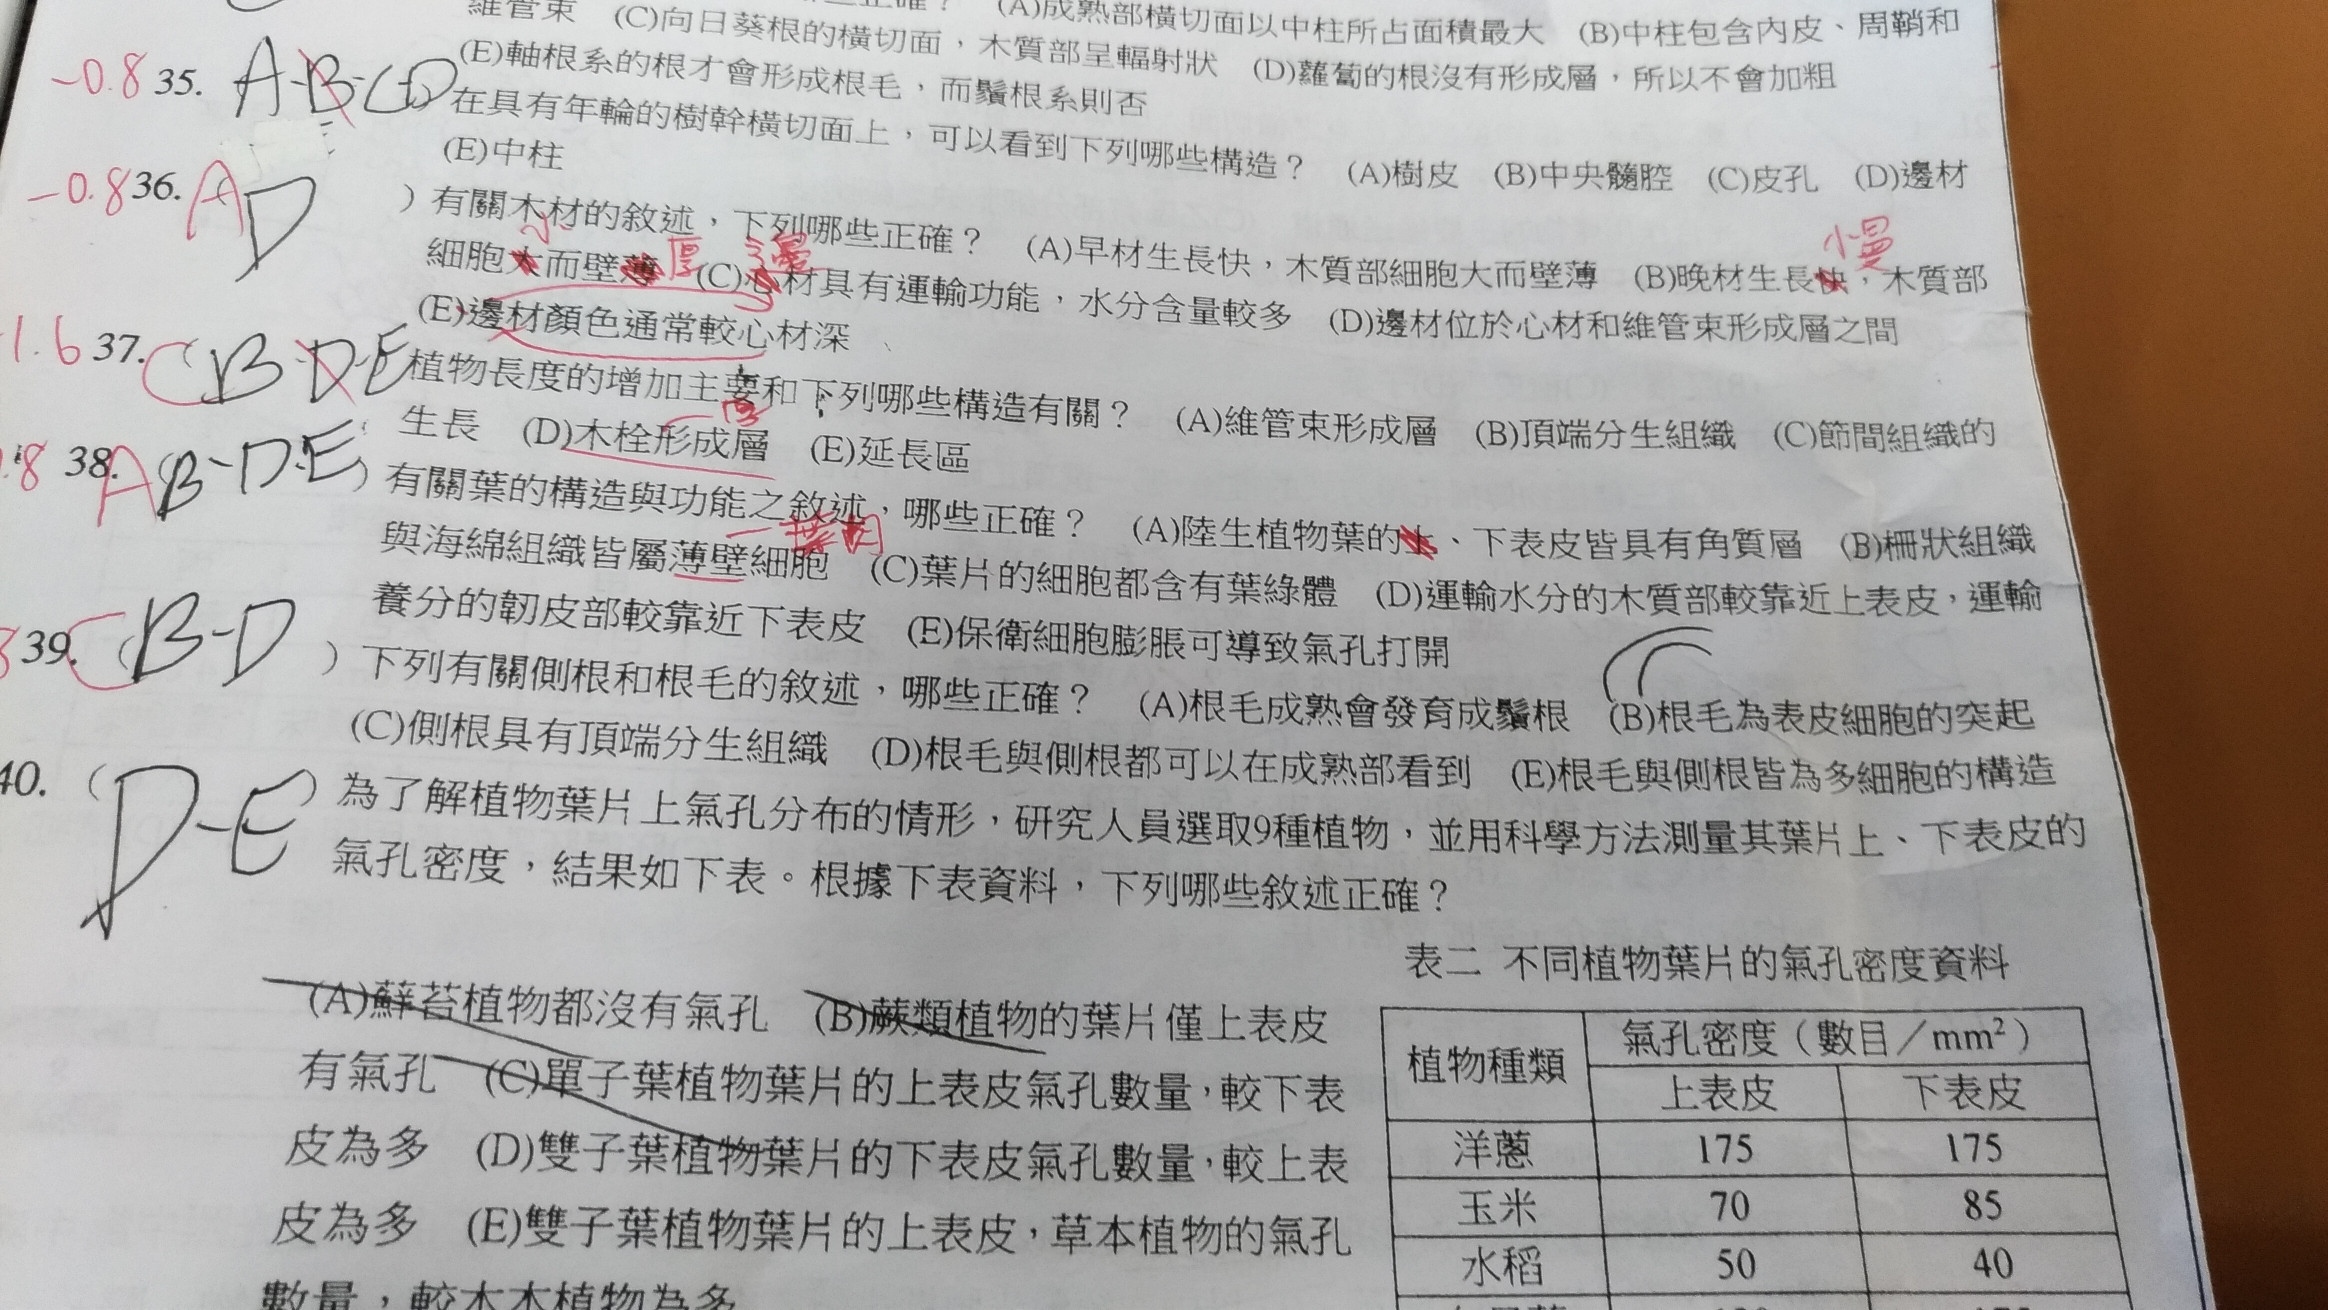 (A)成熟部橫切面以中柱所占面積最大 (B)中柱包含內皮、周鞘和
維管束 (C)向日葵根的橫切面，木質部呈輻射狀 (D)蘿蔔的根沒有形成層，所以不會加粗
(E)軸根系的根才會形成根毛，而鬚根系則否
-0.8 35. A-B-CD 在具有年輪的樹幹橫切面上，可以看到下列哪些構造？ (A)樹皮 (B)中央髓腔 (C)皮孔 (D)邊材
(E)中柱
-0.8 36. A D ) 有關木材的敘述，下列哪些正確？ (A)早材生長快，木質部細胞大而壁薄 (B)晚材生長快，木質部
慢
細胞大而壁薄 (C)心材具有運輸功能，水分含量較多 (D)邊材位於心材和維管束形成層之間
小 厚 邊
(E)邊材顏色通常較心材深
1.6 37. C B-D-E 植物長度的增加主要和下列哪些構造有關？ (A)維管束形成層 (B)頂端分生組織 (C)節間組織的
生長 (D)木栓形成層 (E)延長區
.8 38. A B-D-E ) 有關葉的構造與功能之敘述，哪些正確？ (A)陸生植物葉的上、下表皮皆具有角質層 (B)柵狀組織
與海綿組織皆屬薄壁細胞 (C)葉片的細胞都含有葉綠體 (D)運輸水分的木質部較靠近上表皮，運輸
養分的韌皮部較靠近下表皮 (E)保衛細胞膨脹可導致氣孔打開
39. C (B-D ) 下列有關側根和根毛的敘述，哪些正確？ (A)根毛成熟會發育成鬚根 (B)根毛為表皮細胞的突起
(C)側根具有頂端分生組織 (D)根毛與側根都可以在成熟部看到 (E)根毛與側根皆為多細胞的構造
40. ( D-E ) 為了解植物葉片上氣孔分布的情形，研究人員選取9種植物，並用科學方法測量其葉片上、下表皮的
氣孔密度，結果如下表。根據下表資料，下列哪些敘述正確？
(A)蘚苔植物都沒有氣孔 (B)蕨類植物的葉片僅上表皮
有氣孔 (C)單子葉植物葉片的上表皮氣孔數量，較下表
皮為多 (D)雙子葉植物葉片的下表皮氣孔數量，較上表
皮為多 (E)雙子葉植物葉片的上表皮，草本植物的氣孔
數量，較木本植物為多
表二 不同植物葉片的氣孔密度資料
植物種類 氣孔密度（數目／mm²）
上表皮 下表皮
洋蔥 175 175
玉米 70 85
水稻 50 40